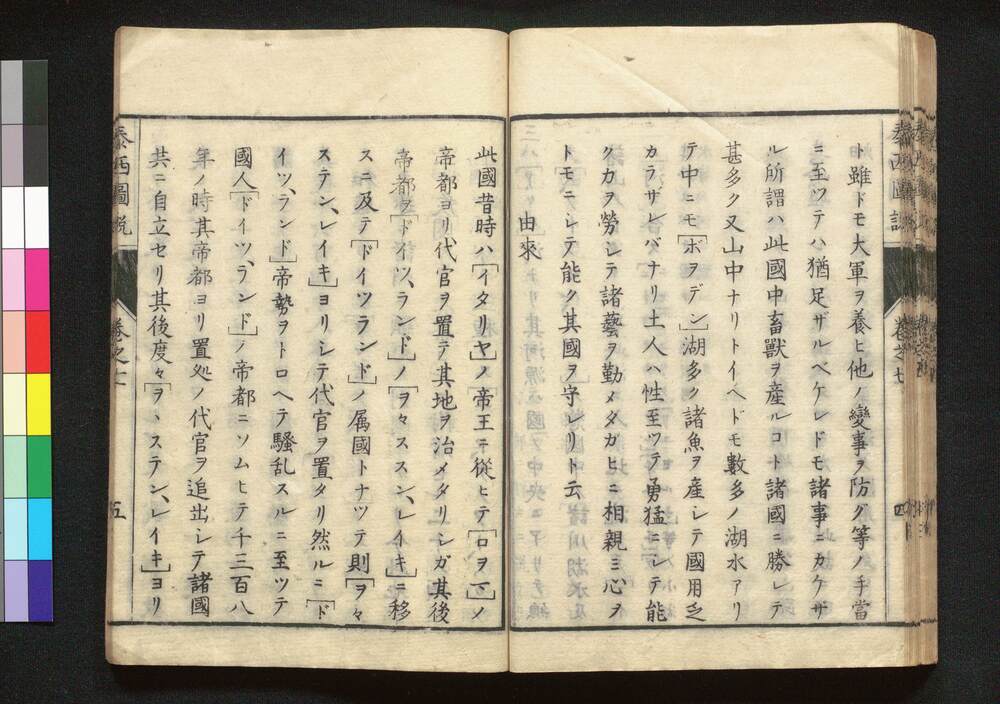 泰西圖説
卷之七
四
ト雖ドモ大軍ヲ養ヒ他ノ變事ヲ防グ等ノ手當
ニ至ツテハ猶足ザルベケレドモ諸事ニカケザ
ル所謂ハ此國中畜獸ヲ産ルコト諸國ニ勝レテ
甚多ク又山中ナリトイヘドモ數多ノ湖水アリ
テ中ニモ[ボヲデン]湖多ク諸魚ヲ産シテ國用乏
カラザレバナリ土人ハ性至ツテ勇猛ニシテ能
ク力ヲ勞シテ諸藝ヲ勤メタガヒニ相親ミ心ヲ
トモニシテ能ク其國ヲ守レリト云
由來
此國昔時ハ[イタリヤ]ノ帝王ニ從ヒテ[ロヲマ]ノ
帝都ヨリ代官ヲ置テ其地ヲ治メタリシガ其後
帝都ヲ[ドイツ、ランド]ノ[ヲヽスステン、レイキ]ニ移
スニ及テ[ドイツランド]ノ属國トナツテ則[ヲヽ
ステン、レイキ]ヨリシテ代官ヲ置タリ然ルニ[ド
イツ、ランド]帝勢ヲトロヘテ騒乱スルニ至ツテ
國人[ドイツ、ランド]ノ帝都ニソムヒテ千三百八
年ノ時其帝都ヨリ置処ノ代官ヲ追出シテ諸國
共ニ自立セリ其後度々[ヲヽステン、レイキ]ヨリ
泰西圖説
卷之七
五